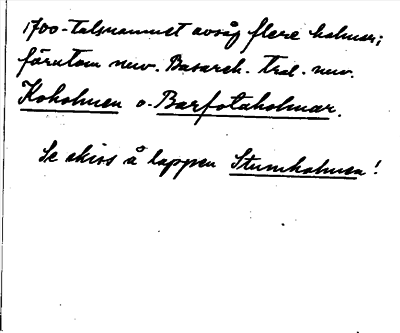 1700-talsnamnet avsåg flere holmar;
förutom nuv. Basareh. trol. nuv.
Koholmen o. Barfotaholmar.
Se skiss å lappen Stumholmen!